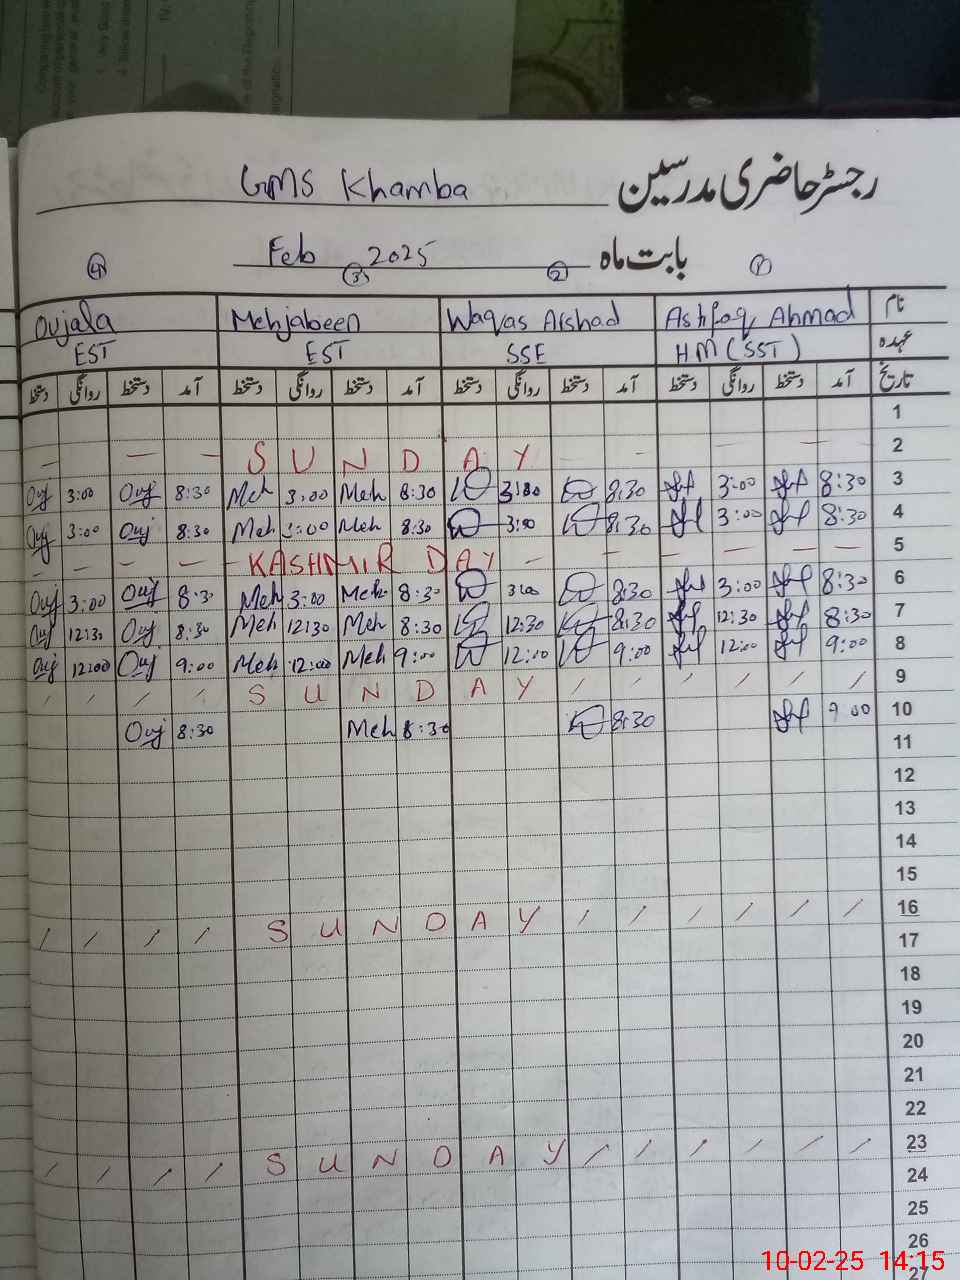 GMS Khamba رجسٹر حاضری مدرسین
Feb 2025 بابت ماہ
4 3 2 1
Oujala Mehjabeen Waqas Arshad Ashfaq Ahmad نام
EST EST SSE HM (SST) عہدہ
دستخط روانگی دستخط آمد دستخط روانگی دستخط آمد دستخط روانگی دستخط آمد دستخط روانگی دستخط آمد تاریخ
1
SUNDAY 2
Ouj 3:00 Ouj 8:30 Meh 3:00 Meh 8:30 3:00 8:30 3:00 8:30 3
Ouj 3:00 Ouj 8:30 Meh 3:00 Meh 8:30 3:00 8:30 3:00 8:30 4
KASHMIR DAY 5
Ouj 3:00 Ouj 8:30 Meh 3:00 Meh 8:30 3:00 8:30 3:00 8:30 6
Ouj 12:30 Ouj 8:30 Meh 12:30 Meh 8:30 12:30 8:30 12:30 8:30 7
Ouj 12:00 Ouj 9:00 Meh 12:00 Meh 9:00 12:00 9:00 12:00 9:00 8
SUNDAY 9
Ouj 8:30 Meh 8:30 8:30 9:00 10
11
12
13
14
15
SUNDAY 16
17
18
19
20
21
22
SUNDAY 23
24
25
26
27
10-02-25 14:15